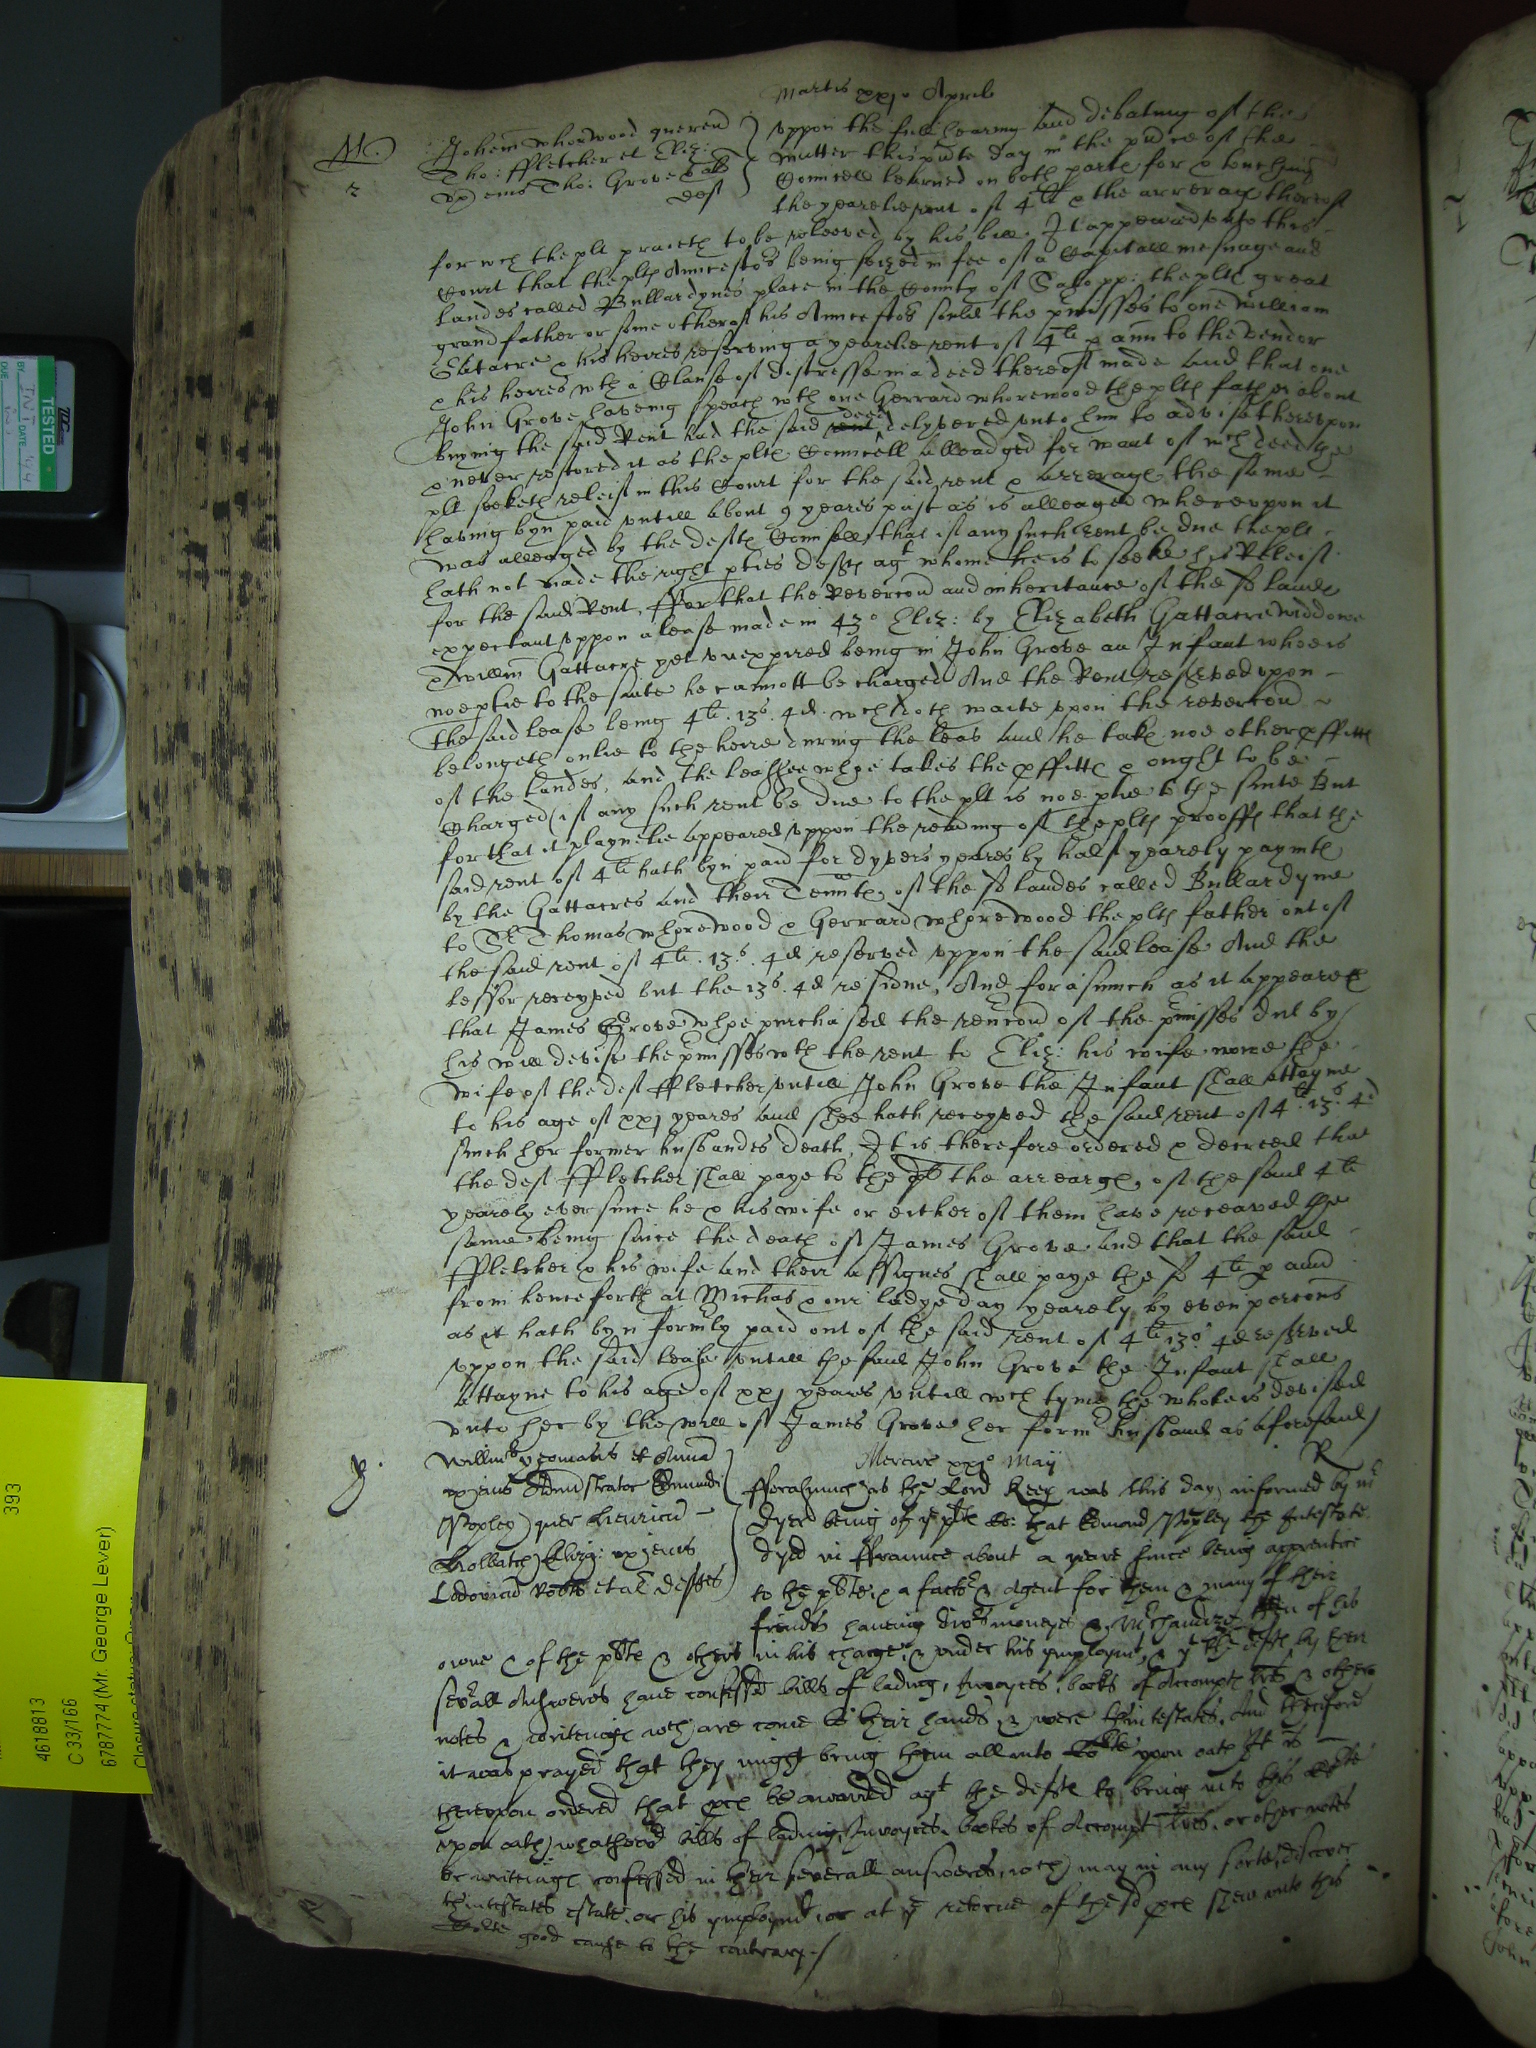 Martis xxjo Aprilis
Johem whorwood queren
Tho: ffletcher et Eliz:
ux eius Tho: Grove & al
def
uppon the full hearing and debating of the
matter this pnte day in the pnce of the
Councell learned on both partes for & touching
the yearelie rent of 4li & the arrerages thereof
for wch the plt praieth to be releeved by his bill. It appeared unto this
Court that the pltes Auncestors being seized in fee of a Capitall mesuage and
landes called Bullardynes place in the County of Salopp: the pltes great
grandfather or some other of his Auncestors sould the pmisses to one William
Gatacre & his heires reserving a yearelie rent of 4li p ann to the vendor
& his heires wth a Clause of distresse in a deed thereof made and that one
John Grove having speach wth one Gerrard whorewood the pltes father about
buying the said Rent had the said rent deed delyvered unto him to advise thereupon
& never restored it as the pltes Councell alleadged for want of wch deed the
plt seeketh releif in this Court for the said rent & arrerages the same
having byn paid untill about 9 yeares past as is alleaged whereupon it
was alleaged by the deftes Councell that if any such rent be due the plt
hath not made the right pties deftes agt whome he is to seeke his Releif
for the said Rent, ffor that the Revercon and inheritance of the sd landes
expectant uppon a lease made in 43o Eliz: by Elizabeth Gattacre widdowe
& Willm Gattacre yet unexpired being in John Grove an Infant whoe is
noe ptie to the suite he cannott be charged And the Rent reserved upon
the said lease being 4li. 13s. 4d. wch doth waite upon the revercon
belongeth onlie to the heire during the leas and he takes noe other pffittes
of the landes, and the leassee whoe takes the pffittes & ought to be
Charged (if any such rent be due to the plt is noe ptie to the suite But
for that it playnelie appeared uppon the reading of the pltes prooffes that the
said rent of 4li hath byn paid for dyvers yeares by half yearely paymtes
by the Gattacres and their Tenantes of the sd landes called Bullardyne
to Sr Thomas whorewood & Gerrard whorewood the pltes father out of
the said rent of 4li. 13s. 4d reserved uppon the said lease And the
lessor receyved but the 13s. 4d residue, And forasmuch as it appeareth
that James Grove whoe purchased the revercon of the pmisses did by
his will devise the pmisses wth the rent to Eliz: his wife nowe the
wife of the def ffletcher untill John Grove the Infant shall attayne
to his age of xxj yeares and shee hath receyved the said rent of 4li. 13s. 4d
since her former husbandes death, It is therefore ordered & decreed that
the def ffletcher shall paye to the plt the arrearges of the said 4li
yearely ever since he & his wife or either of them have receaved the
same being since the death of James Grove and that the said
ffletcher & his wife and their assignes shall paye the sd 4li p ann
from henceforth at Michas & our ladye day yearely by even porcons
as it hath byn formly paid out of the said rent of 4li 13s 4d reserved
uppon the said lease untill the said John Grove the Infant shall
attayne to his age of xxj yeares untill wch tyme the whole is devised
unto her by the will of James Grove her former husband as aforesaid/
Mercurii xxjo Maij
R
Willim Yeomans et Anna
ux eius Administrator Edmundi
Popley) quer Henricum
Holbatch Eliz: ux eius
Lodovicum Roots et al deftes
fforasmuch as the Lord Keep was this day informed by mr
Dyer being of ye pltes Co: that Edmond Popley the Intestate
dyed in ffraunce about a yeare since being apprentice
to the pltes & a factor & Agent for them & many of their
friends haveing divs moneyes & Mchandize of his
owne & of the pltes & others in his charge & under his ymploymt, & yt the deftes by their
sevall Answeres have confessed bills of lading, Invoyces, books of Accompt lres & other
notes & writeinges wch are come to their hands & were thintestates, And therefore
it was prayed that they might bring them all into Co:rte upon oath It is
thereupon ordered that pces be awarded agt the deftes to bring into this Corte
upon oath) what bills of lading, Invoyces, bookes of Accompt lres, or other notes
or writeinges confessed in their severall answeres, wch) may in any sorte discover
thintestates estate, or his ymploymt, or at ye retorne of the sd pces shew unto this
Co:rte good cause to the contrary./
TESTED
393
4618813
C 33/166
6787774 (Mr. George Lever)